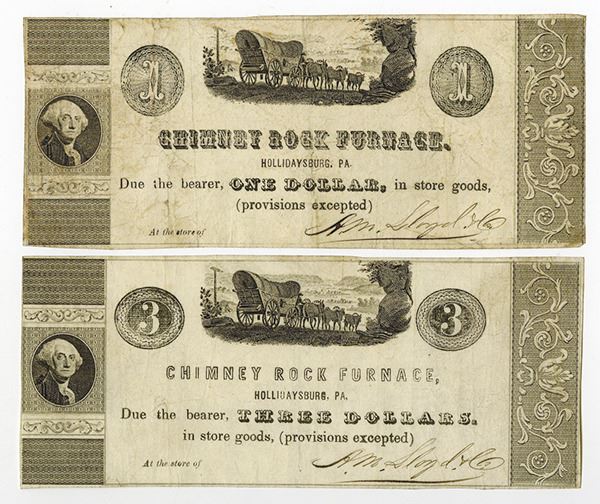 1 1
CHIMNEY ROCK FURNACE.
HOLLIDAYSBURG, PA.
Due the bearer, ONE DOLLAR, in store goods,
(provisions excepted)
At the store of
A. M. Lloyd & Co
3 3
CHIMNEY ROCK FURNACE,
HOLLIDAYSBURG, PA.
Due the bearer, THREE DOLLARS.
in store goods, (provisions excepted)
At the store of
A. M. Lloyd & Co